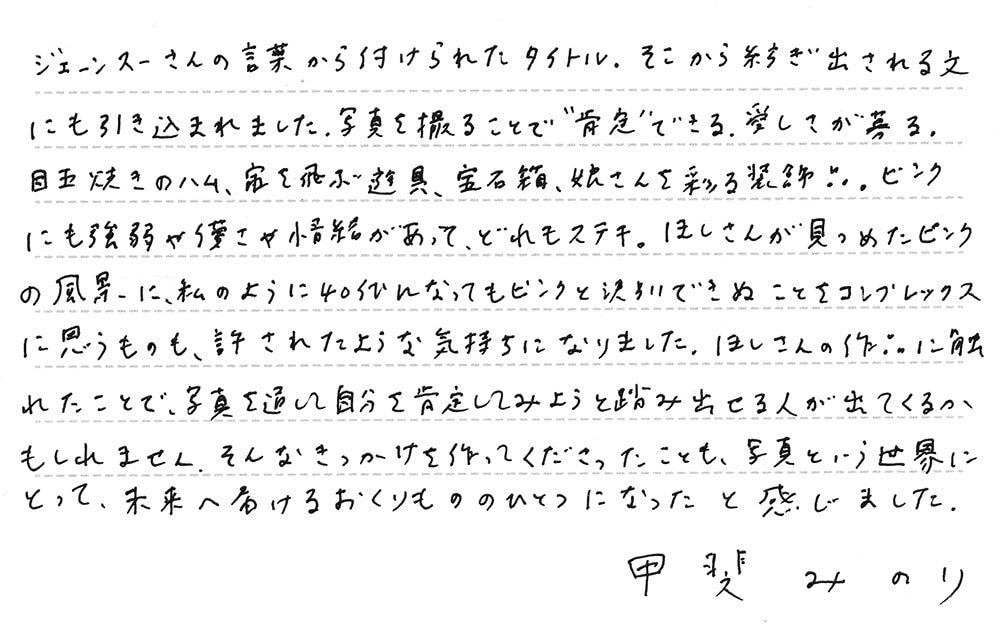 ジェーンスーさんの言葉から付けられたタイトル。そこから紡ぎ出される文
にも引き込まれました。写真を撮ることで"肯定"できる。愛しさが募る。
目玉焼きのハム、宙を飛ぶ遊具、宝石箱、娘さんを彩る装飾品。ピンク
にも強弱や儚さや情緒があって、どれもステキ。ほしさんが見つめたピンク
の風景に、私のように40代になってもピンクと決別できぬことをコンプレックス
に思うものも、許されたような気持ちになりました。ほしさんの作品に触
れたことで、写真を通して自分を肯定してみようと踏み出せる人が出てくるか
もしれません。そんなきっかけを作ってくださったことも、写真という世界に
とって、未来へ届けるおくりもののひとつになったと感じました。
甲斐みのり